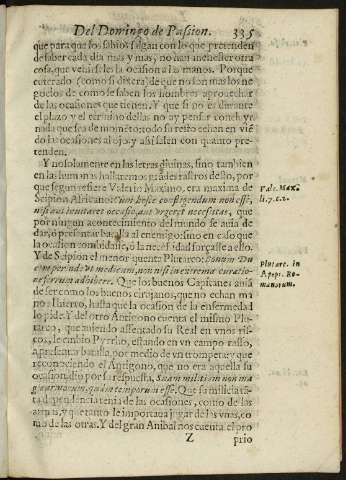 Del Domingo de Passion. 335
que para que los sabios salgan con lo que pretenden
de saber cada dia mas y mas, no han menester otra
cosa, que venirseles la ocasion a las manos. Porque
enterado (como si dixera) de que no son mas los ne-
gocios de como le saben los hombres aprouechar
de las ocasiones que tienen. Y que si no es durante
el plazo y el termino dellas no ay pensar concluyr
nada que sea de momẽto: todo su resto echan en viẽ
do la ocasion al ojo, y assi salen con quanto pre-
tenden.
Y no solamente en las letras diuinas, sino tambien
en las humanas hallaremos grãdes rastros desto, por
que segun refiere Valerio Maximo, era maxima de
Scipion Africano: cum hoste confligendum non esse,
nisi aut inuitaret occasio, aut vrgeret necessitas, que
por ningun acontecimiento del mundo se auia de
dar, o presentar batalla al enemigo: sino en caso que
la ocasion combidasse, o la necessidad forçasse a esso.
Y de Scipion el menor quenta Plutarco:
medicum, non nisi in extrema curatio-
ne ferrum adhibere. Que los buenos Capitanes auiã
de ser como los buenos cirujanos, que no echan ma
no al hierro, hasta que la ocasion de la enfermedad
lo pide. Y del otro Antigono cuenta el mismo Plu-
tarco, que auiendo assentado su Real en vnos ris-
cos, le embio Pyrrho, estando en vn campo rasso,
a presentar batalla, por medio de vn trompeta: y que
reconociendo el Antigono, que no era aquella su
ocasion, dio por su respuesta, Suam militiam non ma
gis armorum, quàm temporum esse. Que su milicia tã-
ta dependencia tenia de las ocasiones, como de las
armas, y que tanto le importaua jugar de las vnas, co
mo de las otras. Y del gran Anibal nos cuenta el pro
Z prio
Vale. Max.
li. 7. c. 2.
Plutarc. in
Apoph. Ro-
manorum.